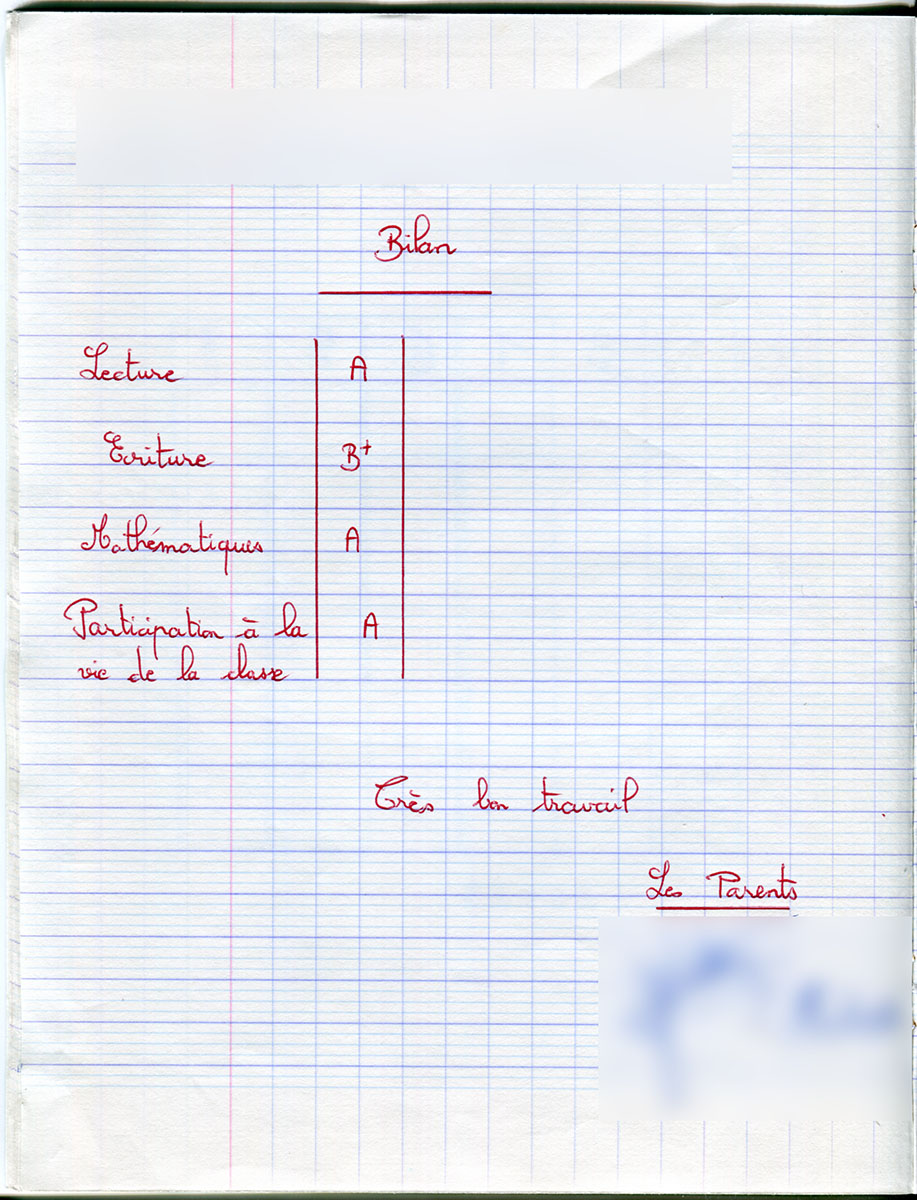 Bilan
Lecture A
Ecriture B+
Mathématiques A
Participation à la A
vie de la classe
Très bon travail
Les Parents